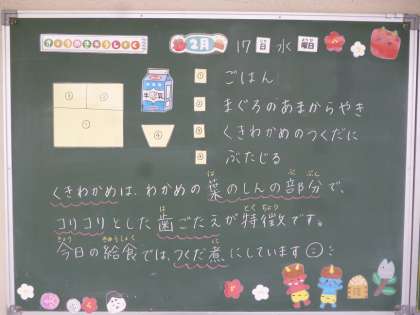 きょうのきゅうしょく
2月 17日 水曜日
① ごはん
② まぐろのあまからやき
③ くきわかめのつくだに
④ ぶたじる
③ ②
①
④
牛乳
くきわかめは、わかめの葉のしんの部分で、
コリコリとした歯ごたえが特徴です。
今日の給食では、つくだ煮にしています